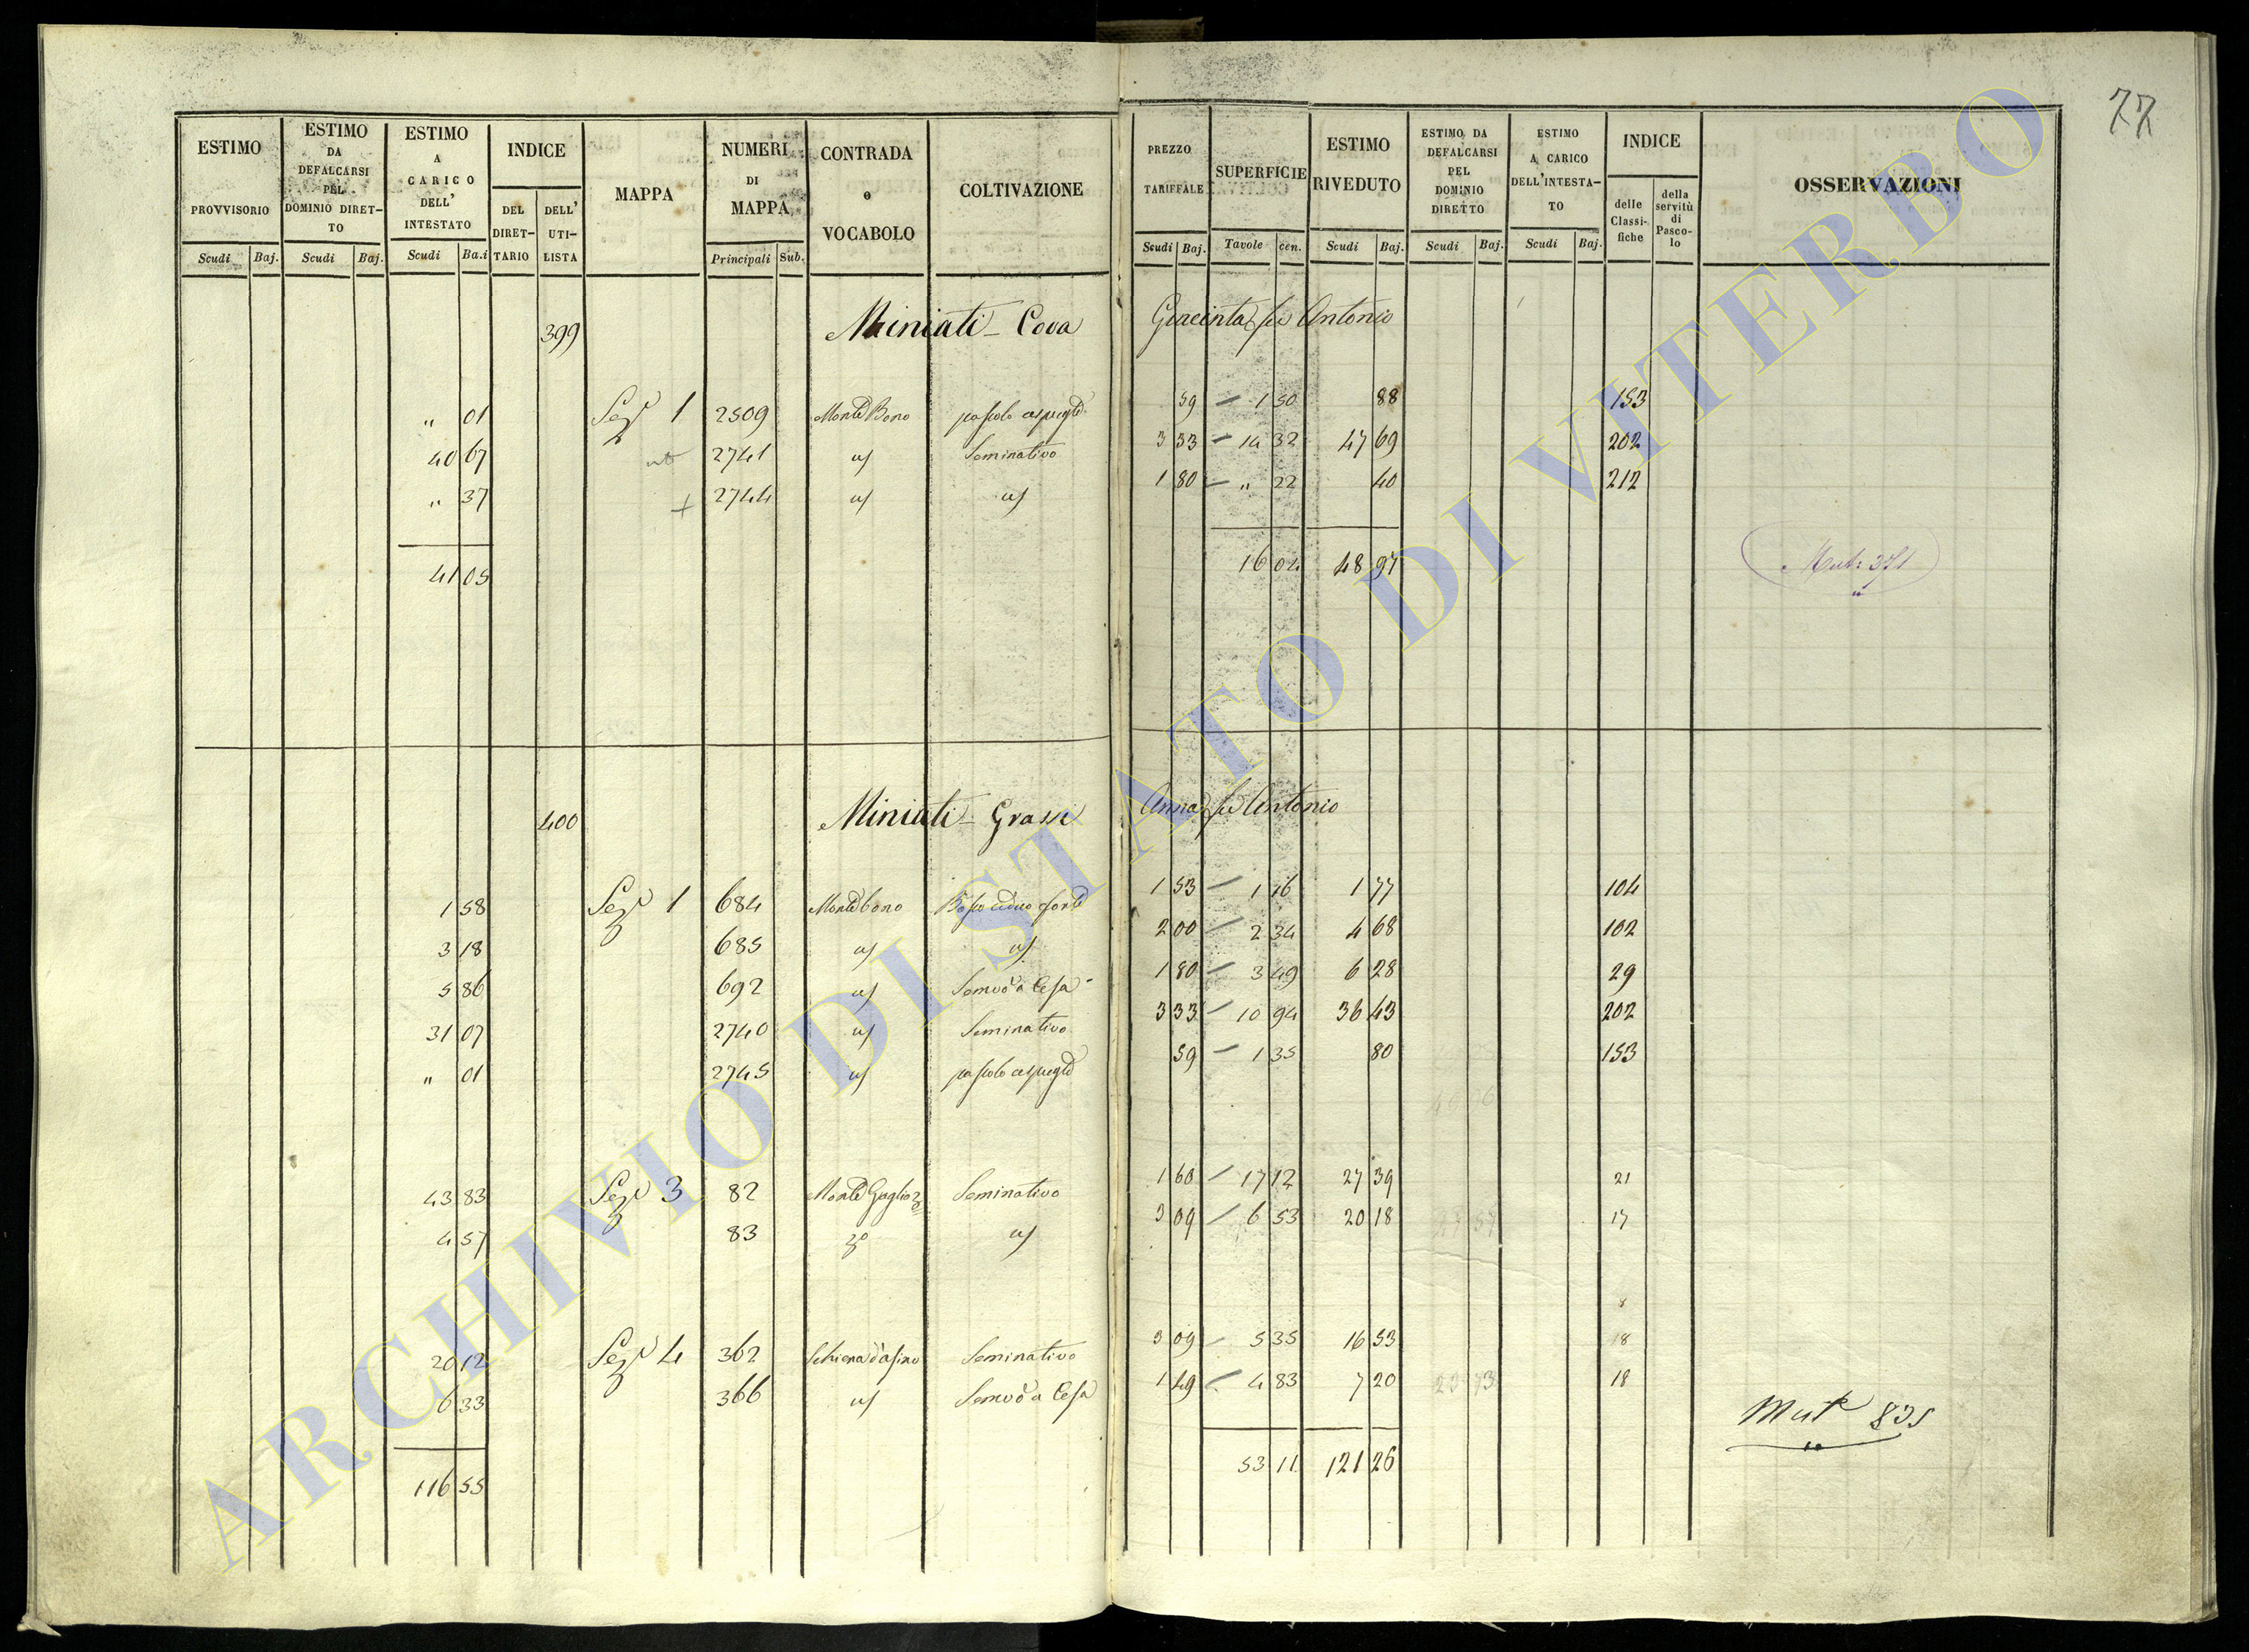 77
ESTIMO PROVVISORIO Scudi Baj.
ESTIMO DA DEFALCARSI PEL DOMINIO DIRET-TO Scudi Baj.
ESTIMO A CARICO DELL' INTESTATO Scudi Ba.i
INDICE DEL DIRET-TARIO DELL' UTI-LISTA
MAPPA
NUMERI DI MAPPA Principali Sub.
CONTRADA o VOCABOLO
COLTIVAZIONE
PREZZO TARIFFALE Scudi Baj.
SUPERFICIE Tavole cen.
ESTIMO RIVEDUTO Scudi Baj.
ESTIMO DA DEFALCARSI PEL DOMINIO DIRETTO Scudi Baj.
ESTIMO A CARICO DELL'INTESTA-TO Scudi Baj.
INDICE delle Classi-fiche della servitù di Pasco-lo
OSSERVAZIONI
399 Miniati - Cova Giacinta fu Antonio
" 01 Sez. 1 2509 Monte Bono pascolo cespugl. 59 - 1 50 88 153
40 67 2741 Seminativo 3 33 - 14 32 47 69 202
" 37 + 2744 1 80 - " 22 40 212
41 05 16 04 48 97 Mut. 371
400 Miniati - Grassi Anna fu Antonio
1 58 Sez. 1 684 Monte bono Bosco ceduo forte 1 53 - 1 16 1 77 104
3 18 685 2 00 - 2 34 4 68 102
5 86 692 Semvo a Cesa 1 80 - 3 49 6 28 29
31 07 2740 Seminativo 3 33 - 10 94 36 43 202
" 01 2745 pascolo cespugl. 59 - 1 35 80 153
43 83 Sez. 3 82 Seminativo 1 60 - 17 12 27 39 21
4 57 83 3 09 - 6 53 20 18 17
20 12 Sez. 4 362 Schiena d'asino Seminativo 3 09 - 5 35 16 53 18
6 33 366 Semvo a Cesa 1 49 - 4 83 7 20 18
116 55 53 11 121 26 Mut. 835
ARCHIVIO DI STATO DI VITERBO